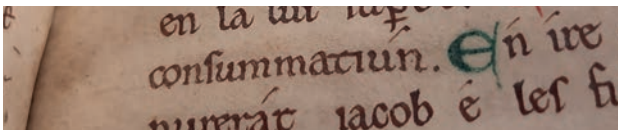 en la lui
conſummatiun. En ire
jacob e leſ